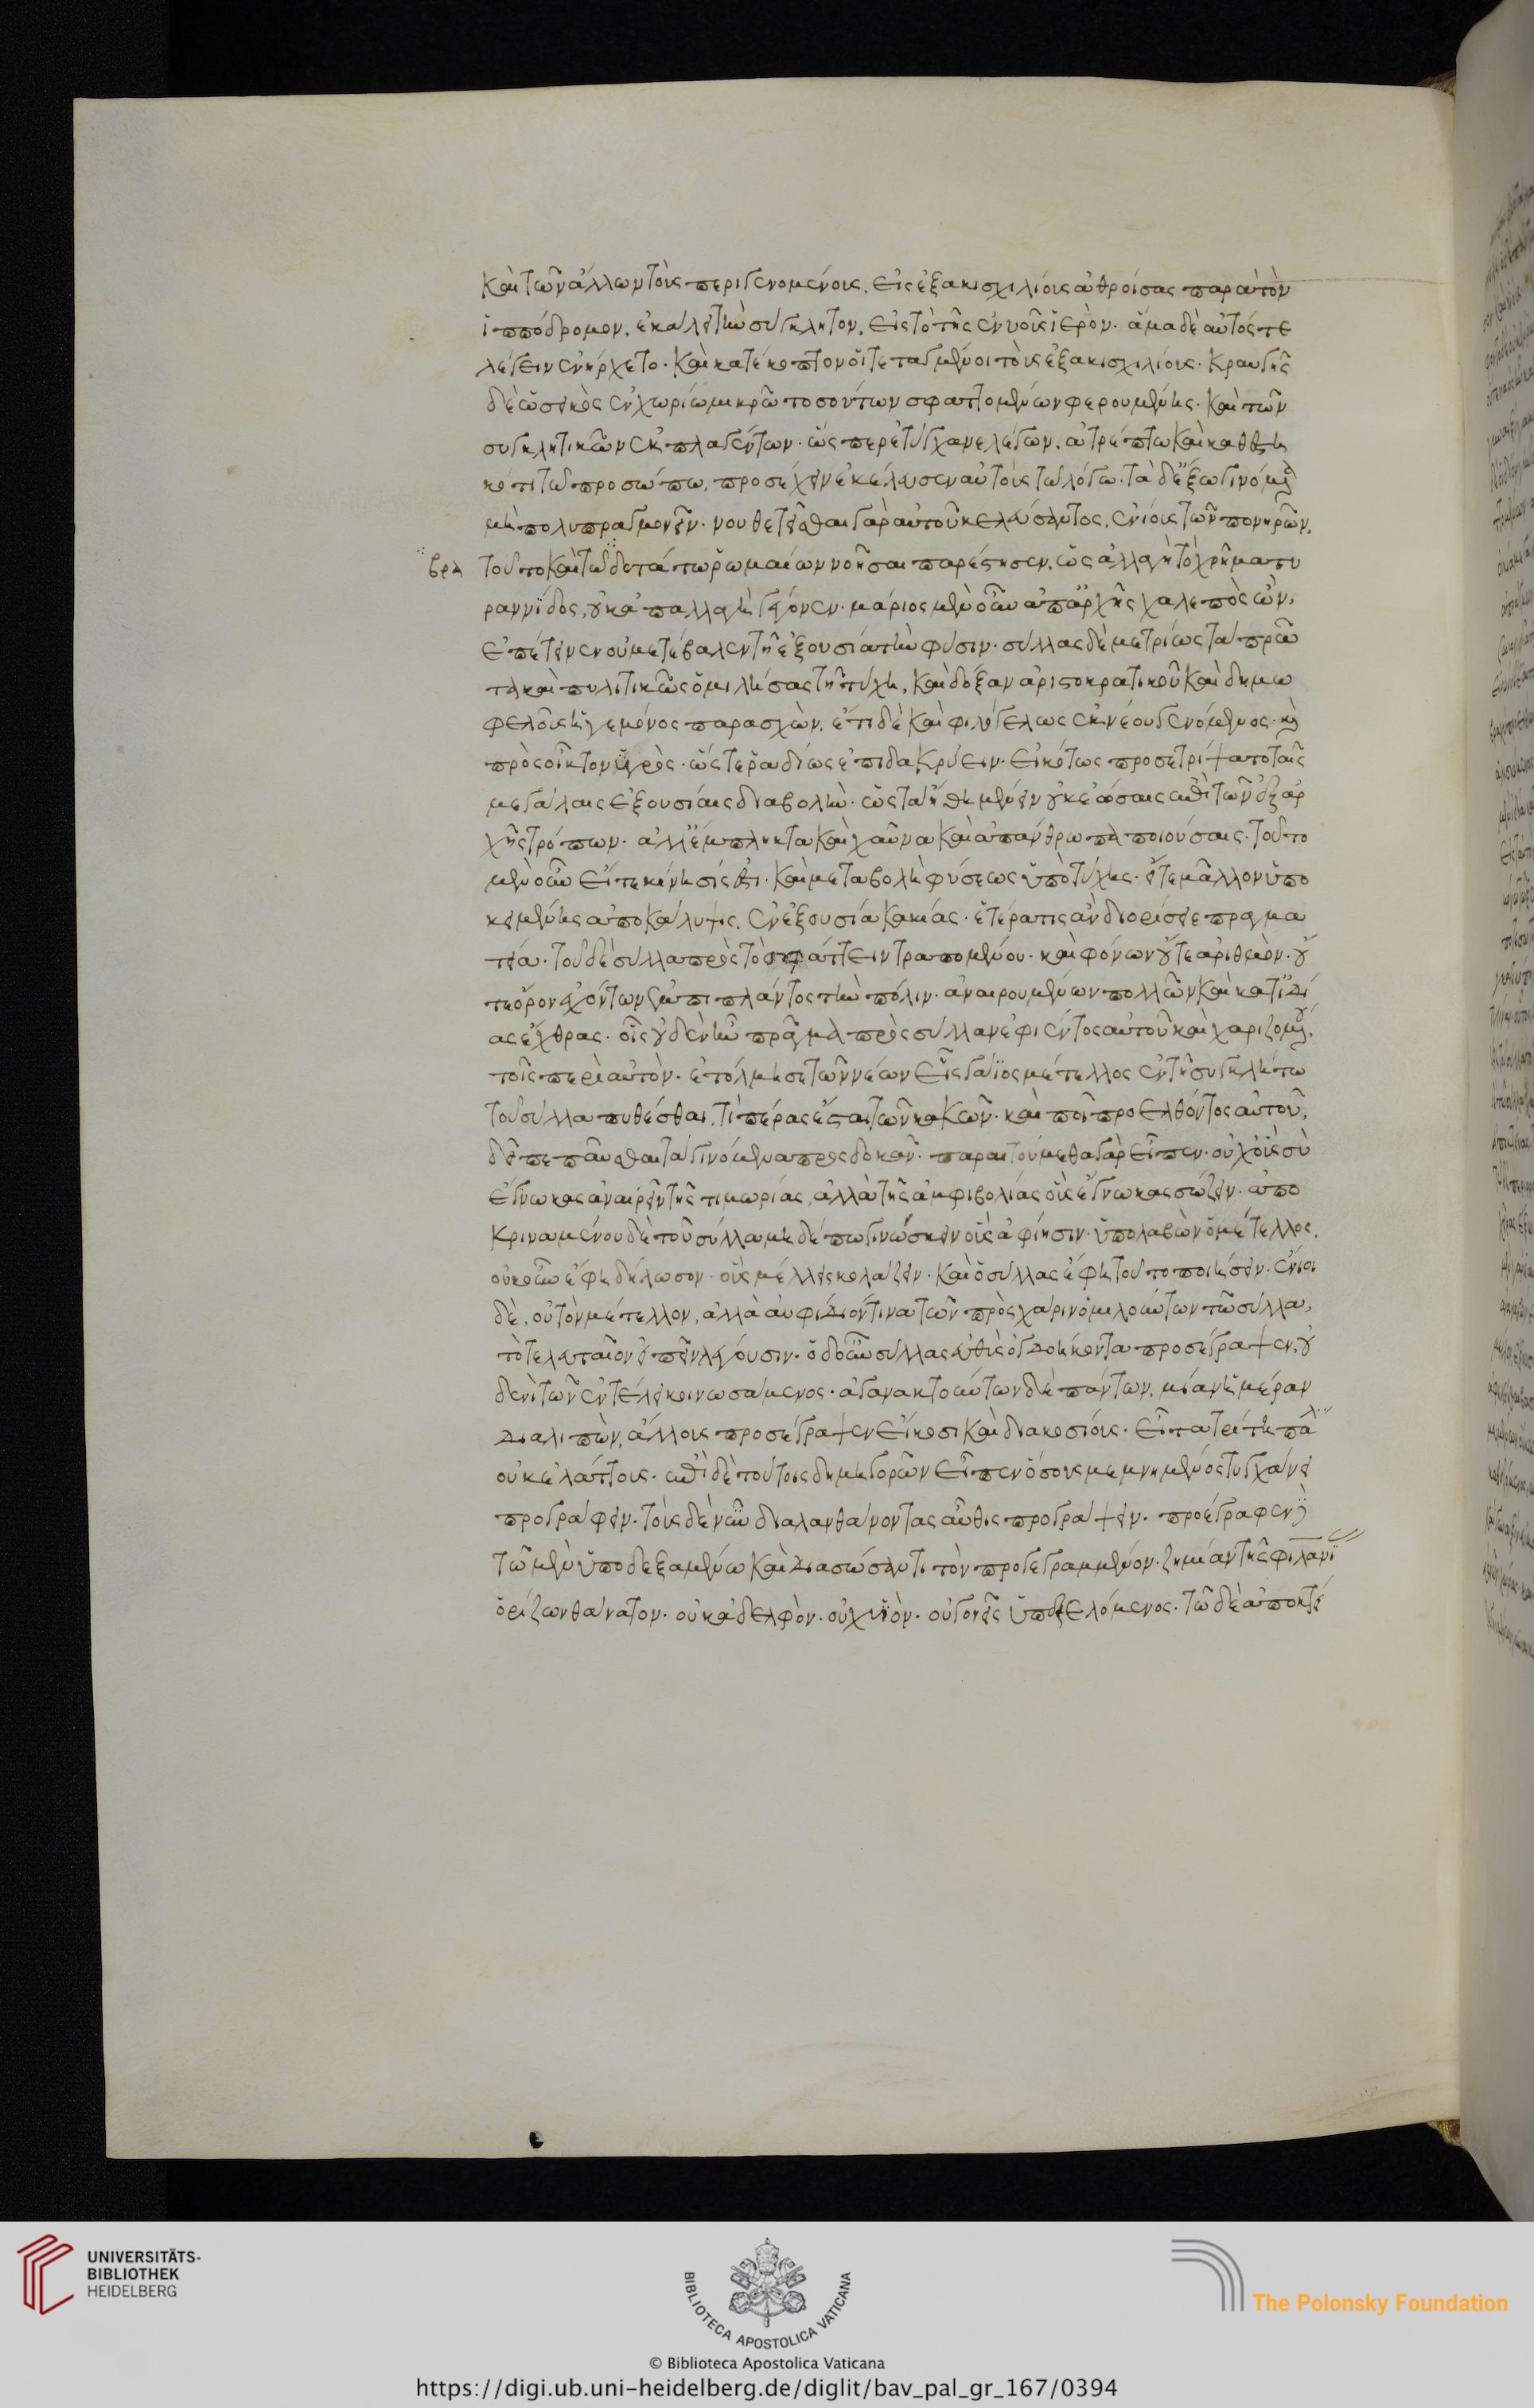 καὶ τῶν ἄλλων τοὺς περιγενομένους, εἰς ἑξακισχιλίους ἀθροίσας παρὰ τὸν
ἱππόδρομον, ἐκάλει τὴν σύγκλητον, εἰς τὸ τῆς ἐνυοῦς ἱερόν· ἅμα δὲ αὐτός τε
λέγειν ἐνήρχετο· καὶ κατέκοπτον οἱ τεταγμένοι τοὺς ἑξακισχιλίους· κραυγῆς
δὲ ὡς εἰκὸς ἐν χωρίω μικρῶ τοσούτων σφαττομένων φερουμένης· καὶ τῶν
συγκλητικῶν ἐκπλαγέντων· ὥσπερ ἐτύγχανε λέγων, ἀτρέπτω καὶ καθεστη
κότι τῶ προσώπω, προσέχειν ἐκέλευσεν αὐτοὺς τῶ λόγω· τὰ δ' ἔξω γινόμενα
μὴ πολυπραγμονεῖν· νουθετεῖσθαι γὰρ αὐτοῦ κελεύσαντος, ἐνίους τῶν πονηρῶν.
τοῦτο καὶ τῶ βραδυτάτω ῥωμαίων νοῆσαι παρέστησεν, ὡς ἀλλαγὴ τὸ χρῆμα τυ
ραννίδος, οὐκ ἀπαλλαγὴ γέγονεν· μάριος μὲν οὖν ἀπ' ἀρχῆς χαλεπὸς ὢν,
ἐπέτεινεν οὐ μετέβαλεν τῆ ἐξουσία τὴν φύσιν· σύλλας δὲ μετρίως τὰ πρῶ
τα καὶ πολιτικῶς ὁμιλήσας τῆ τύχη, καὶ δόξαν ἀριστοκρατικοῦ καὶ δημω
φελοῦς ἡγεμόνος παρασχὼν, ἔτι δὲ καὶ φιλόγελως ἐκ νέου γενόμενος· καὶ
πρὸς οἶκτον ὑγρὸς· ὥστε ῥαδίως ἐπιδακρύειν· εἰκότως προσετρίψατο ταῖς
μεγάλαις ἐξουσίαις διαβολὴν· ὡς τὰ ἤθη μένειν οὐκ ἐώσαις ἐπὶ τῶν ἐξ ἀρ
χῆς τρόπων· ἀλλ' ἔμπληκτα καὶ χαῦνα καὶ ἀπάνθρωπα ποιούσαις· τοῦτο
μὲν οὖν εἴτε κίνησίς ἐστι· καὶ μεταβολὴ φύσεως ὑπὸ τύχης· εἴτε μᾶλλον ὑπο
κειμένης ἀποκάλυψις, ἐν ἐξουσία κακίας· ἑτέρα τις ἂν διορίσειε πραγμα
τεία· τοῦ δὲ σύλλα πρὸς τὸ σφάττειν τραπομένου· καὶ φόνων οὔτε ἀριθμὸν· οὔ
τε ὅρον ἐχόντων ἐμπιπλάντος τὴν πόλιν· ἀναιρουμένων πολλῶν καὶ κατ' ἰδί
ας ἔχθρας· οἷς οὐδὲν ἦν πρᾶγμα πρὸς σύλλαν ἐφιέντος αὐτοῦ καὶ χαριζομένου
τοῖς περὶ αὐτὸν· ἐτόλμησε τῶν νέων εἷς γάϊος μέτελλος ἐν τῆ συγκλήτω
τοῦ σύλλα πυθέσθαι, τί πέρας ἔσται τῶν κακῶν· καὶ ποῖ προελθόντος αὐτοῦ,
δεῖ πεπαῦσθαι τὰ γινόμενα προσδοκᾶν· παραιτούμεθα γὰρ εἶπεν· οὐχ οὓς σὺ
ἔγνωκας ἀναιρεῖν τῆς τιμωρίας, ἀλλὰ τῆς ἀμφιβολίας οὓς ἔγνωκας σώζειν· ἀπο
κριναμένου δὲ τοῦ σύλλα μηδέπω γινώσκειν οὓς ἀφίησιν· ὑπολαβὼν ὁ μέτελλος,
οὐκοῦν ἔφη δήλωσον· οὓς μέλλεις κολάζειν· καὶ ὁ σύλλας ἔφη τοῦτο ποιήσειν· ἔνιοι
δὲ, οὐ τὸν μέτελλον, ἀλλὰ αὐφίδιόν τινα τῶν πρὸς χάριν ὁμιλούντων τῶ σύλλα,
τὸ τελευταῖον εἰπεῖν λέγουσιν· ὁ δ' οὖν σύλλας εὐθὺς ὀγδοήκοντα προσέγραψεν, οὐ
δενὶ τῶν ἐν τέλει κοινωσάμενος· ἀγανακτούντων δὲ πάντων, μίαν ἡμέραν
διαλιπὼν, ἄλλους προσέγραψεν εἴκοσι καὶ διακοσίους· εἶτα τρίτη πάλιν
οὐκ ἐλάττους· ἐπὶ δὲ τούτοις δημηγορῶν εἶπεν ὅσους μεμνημένος τυγχάνει
προγράφειν· τοὺς δὲ νῦν διαλανθάνοντας αὖθις προγράψειν· προέγραφεν δὲ
τῶ μὲν ὑποδεξαμένω καὶ διασώσαντι τὸν προγεγραμμένον· ζημίαν τῆς φιλανθρωπίας
ὁρίζων θάνατον· οὐκ ἀδελφὸν· οὐχ υἱὸν· οὐ γονεῖς ὑπεξελόμενος· τῶ δὲ ἀποκτεί
UNIVERSITÄTS-
BIBLIOTHEK
HEIDELBERG
BIBLIOTECA APOSTOLICA VATICANA
The Polonsky Foundation
© Biblioteca Apostolica Vaticana
https://digi.ub.uni-heidelberg.de/diglit/bav_pal_gr_167/0394